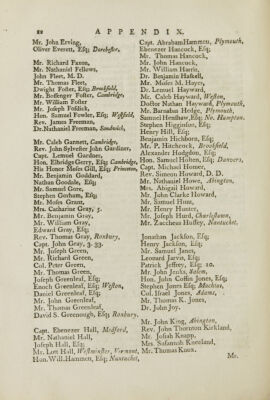 22 APPENDIX.
Mr. John Erving,
Oliver Everett, Esq; Dorchester.
Mr. Richard Faxon,
Mr. Nathaniel Fellows,
John Fleet, M. D.
Mr. Thomas Fleet,
Dwight Foster, Esq; Brookfield,
Mr. Bossenger Foster, Cambridge,
Mr. William Foster
Mr. Joseph Fosdick,
Hon. Samuel Fowler, Esq; Westfield,
Rev. James Freeman,
Dr. Nathaniel Freeman, Sandwich,
Mr. Caleb Gannett, Cambridge,
Rev. John Sylvester John Gardiner,
Capt. Lemuel Gardner,
Hon. Elbridge Gerry, Esq; Cambridge,
His Honor Moses Gill, Esq; Princeton,
Mr. Benjamin Goddard,
Nathan Goodale, Esq;
Mr. Samuel Gore,
Stephen Gorham, Esq;
Mr. Moses Grant,
Mrs. Catharine Gray, 5.
Mr. Benjamin Gray,
Mr. William Gray,
Edward Gray, Esq;
Rev. Thomas Gray, Roxbury,
Capt. John Gray, 3. 33.
Mr. Joseph Green,
Mr. Richard Green,
Col. Peter Green,
Mr. Thomas Green,
Joseph Greenleaf, Esq;
Enoch Greenleaf, Esq; Weston,
Daniel Greenleaf, Esq;
Mr. John Greenleaf,
Mr. Thomas Greenleaf,
David S. Greenough, Esq; Roxbury.
Capt. Ebenezer Hall, Medford,
Mr. Nathaniel Hall,
Joseph Hall, Esq;
Mr. Lott Hall, Westminster, Vermont,
Hon. Will. Hammen, Esq; Nantucket,
Capt. Abraham Hammen, Plymouth,
Ebenezer Hancock, Esq;
Mr. Thomas Hancock,
Mr. John Hancock,
Mr. William Harris,
Dr. Benjamin Haskell,
Mr. Moses M. Hayes,
Dr. Lemuel Hayward,
Mr. Caleb Hayward, Weston,
Doctor Nathan Hayward, Plymouth,
Mr. Barnabas Hedge, Plymouth,
Samuel Henshaw, Esq; No. Hampton.
Stephen Higginson, Esq;
Henry Hill, Esq;
Benjamin Hichborn, Esq;
Mr. P. Hitchcock, Brookfield,
Alexander Hodgdon, Esq;
Hon. Samuel Holten, Esq; Danvers,
Capt. Michael Homer,
Rev. Simeon Howard, D. D.
Mr. Nathaniel Howe, Abington,
Mrs. Abigail Howard,
Mr. John Clarke Howard,
Mr. Samuel Hunt,
Mr. Henry Hunter,
Mr. Joseph Hurd, Charlestown,
Mr. Zaccheus Hussey, Nantucket.
Jonathan Jackson, Esq;
Henry Jackson, Esq;
Mr. Samuel Janes,
Leonard Jarvis, Esq;
Patrick Jeffrey, Esq; 10.
Mr. John Jenks, Salem,
Hon. John Coffin Jones, Esq;
Stephen Jones Esq; Machias,
Col. Israel Jones, Adams,
Mr. Thomas K. Jones,
Dr. John Joy.
Mr. John King, Abington,
Rev. John Thornton Kirkland,
Mr. Josiah Knapp,
Mrs. Susannah Kneeland,
Mr. Thomas Knox.
Mr.